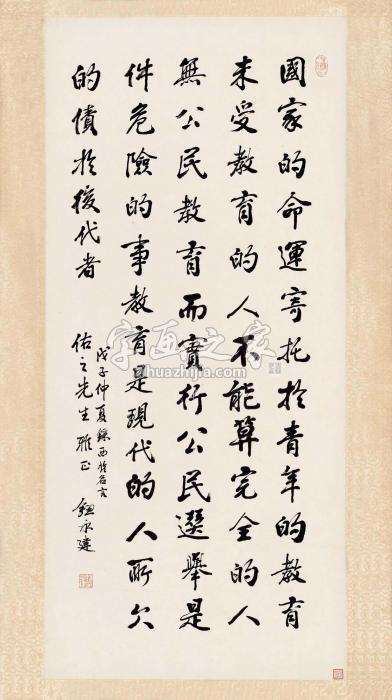 國家的命運寄托於青年的教育
未受教育的人不能算完全的人
無公民教育而實行公民選舉是
件危險的事教育是現代的人所欠
的債於後代者
戊子仲夏錄西哲名言
佑之先生雅正 鈕永建
字画之家
huazhijia.com